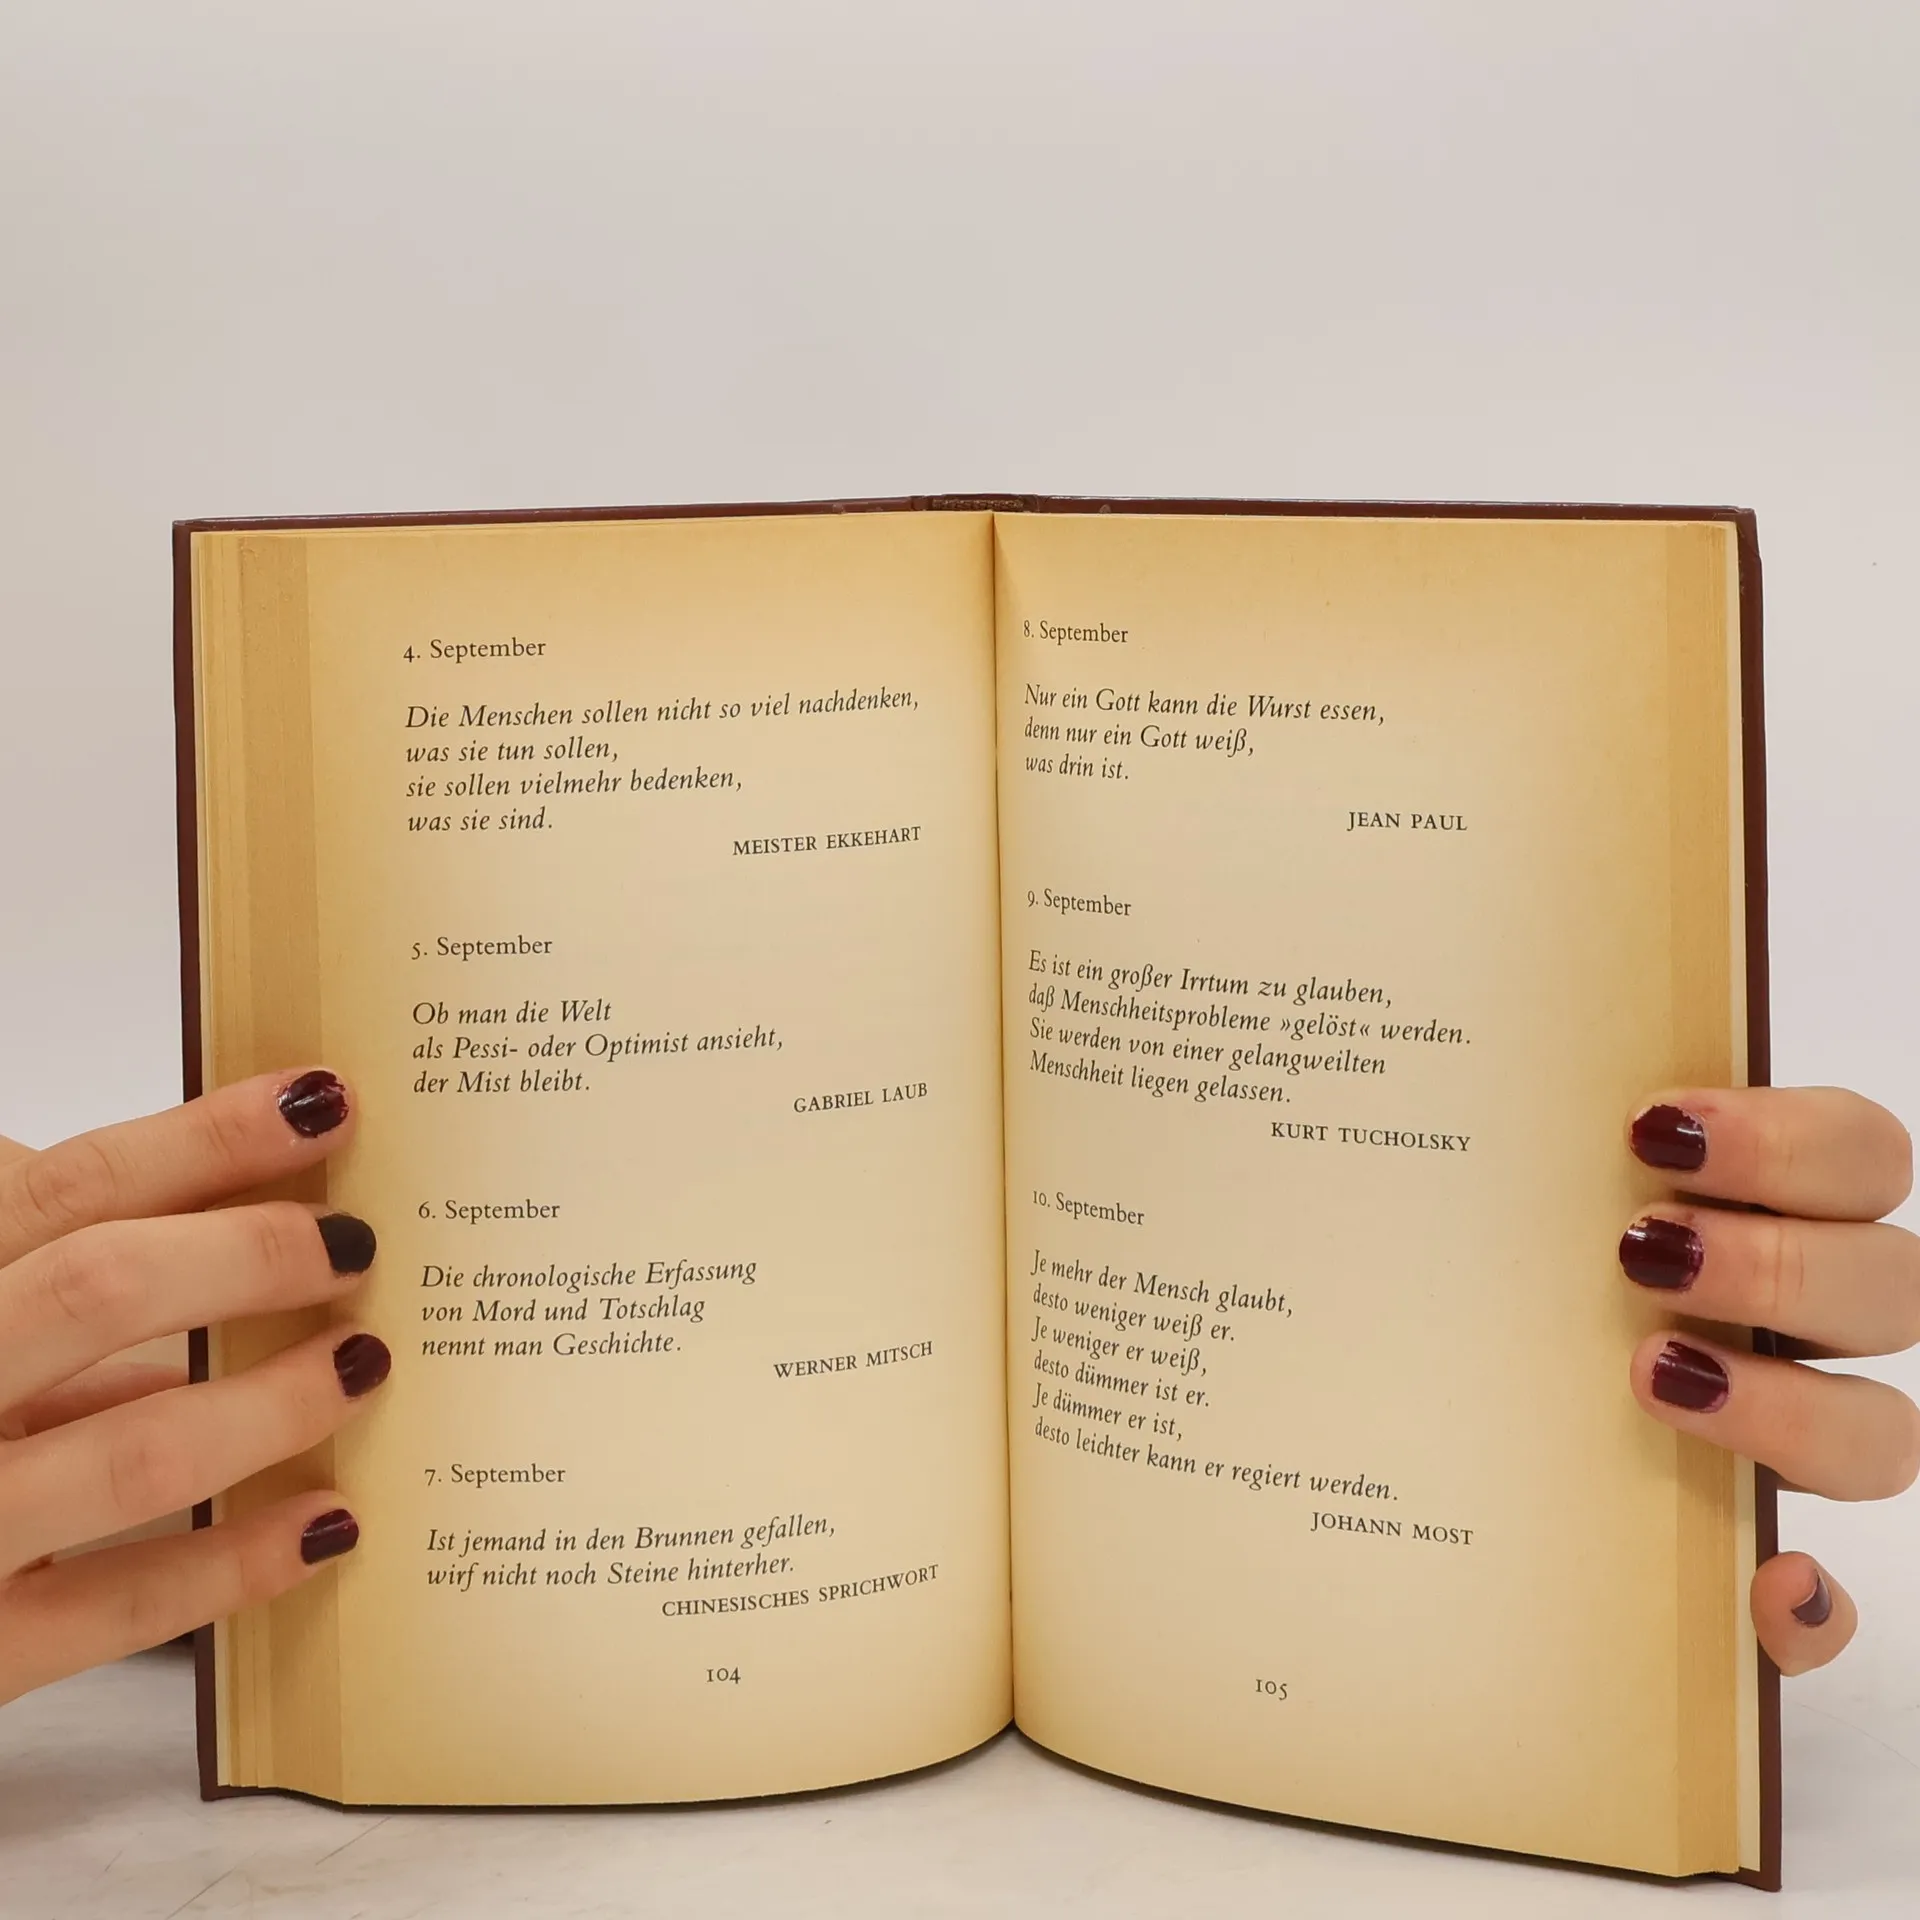 4. September
Die Menschen sollen nicht so viel nachdenken,
was sie tun sollen,
sie sollen vielmehr bedenken,
was sie sind.
MEISTER EKKEHART
5. September
Ob man die Welt
als Pessi- oder Optimist ansieht,
der Mist bleibt.
GABRIEL LAUB
6. September
Die chronologische Erfassung
von Mord und Totschlag
nennt man Geschichte.
WERNER MITSCH
7. September
Ist jemand in den Brunnen gefallen,
wirf nicht noch Steine hinterher.
CHINESISCHES SPRICHWORT
104
8. September
Nur ein Gott kann die Wurst essen,
denn nur ein Gott weiß,
was drin ist.
JEAN PAUL
9. September
Es ist ein großer Irrtum zu glauben,
daß Menschheitsprobleme »gelöst« werden.
Sie werden von einer gelangweilten
Menschheit liegen gelassen.
KURT TUCHOLSKY
10. September
Je mehr der Mensch glaubt,
desto weniger weiß er.
Je weniger er weiß,
desto dümmer ist er.
Je dümmer er ist,
desto leichter kann er regiert werden.
JOHANN MOST
105